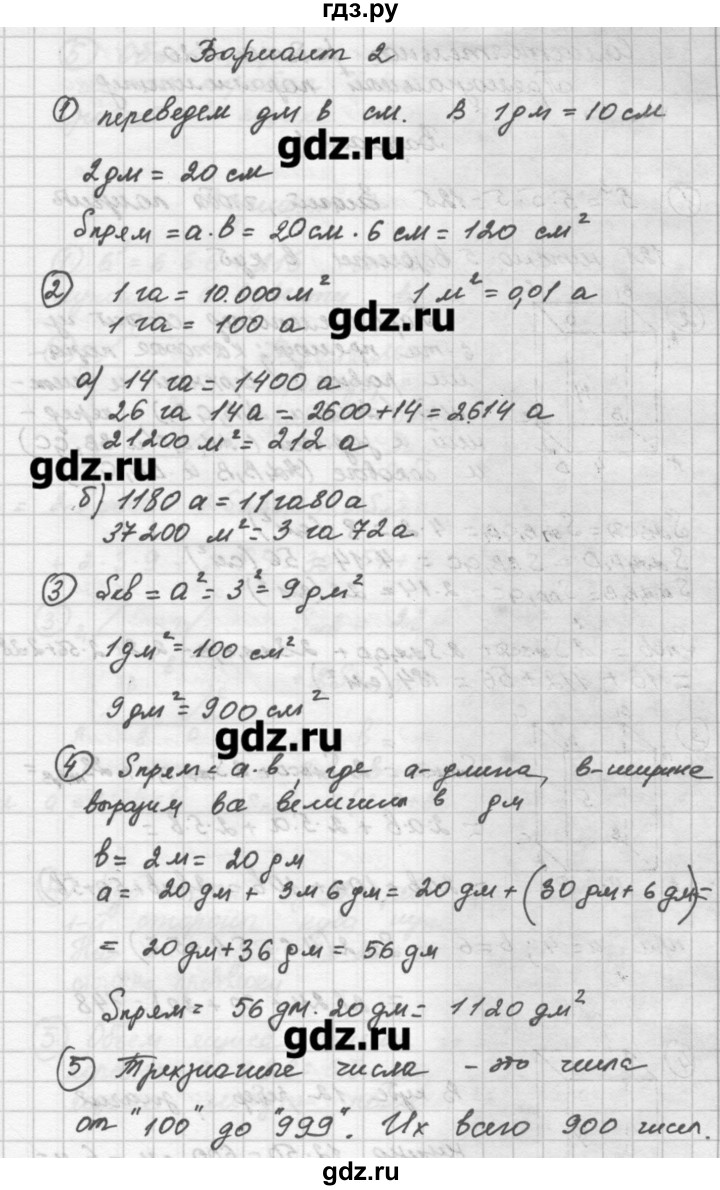 гдз.ру
Вариант 2
① переведем дм в см. В 1дм = 10см
gdz.ru
2дм = 20 см
Sпрям = а·в = 20см · 6 см = 120 см²
② 1 га = 10.000 м² 1 м² = 0,01 а
gdz.ru
1 га = 100 а
а) 14 га = 1400 а
26 га 14а = 2600+14 = 2614 а
21200 м² = 212 а
gdz.ru
б) 1180 а = 11га80а
37200 м² = 3 га 72а
③ Sкв = а² = 3² = 9дм²
1дм² = 100 см²
9дм² = 900 см²
gdz.ru
④ Sпрям = а·в, где а-длина, в-ширина
выразим все величины в дм
в = 2м = 20 дм
а = 20дм + 3м 6дм = 20дм+(30дм+6дм)=
= 20дм+36дм = 56 дм
Sпрям = 56 дм · 20дм = 1120 дм²
gdz.ru
⑤ Трехзначные числа - это числа
от "100" до "999". Их всего 900 чисел.
gdz.ru